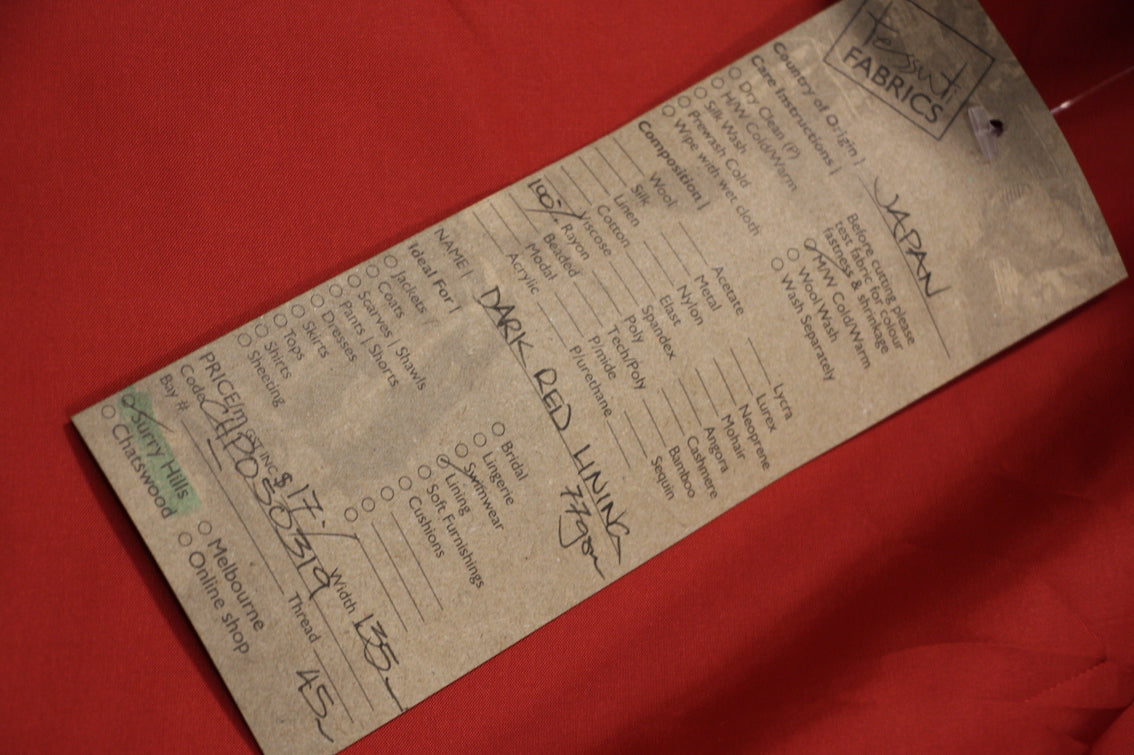 Tessuti
FABRICS
Country of Origin | JAPAN
Care Instructions |
Dry Clean (P)
H/W Cold/Warm
Silk Wash
Prewash Cold
Wipe with wet cloth
Before cutting please
test fabric for colour
fastness & shrinkage
M/W Cold/Warm
Wool Wash
Wash Separately
Composition |
Wool
Silk
Linen
Cotton
Viscose
100% Rayon
Beaded
Modal
Acrylic
Acetate
Metal
Nylon
Elast
Spandex
Poly
Tech/Poly
P/mide
P/urethane
Lycra
Lurex
Neoprene
Mohair
Angora
Cashmere
Bamboo
Sequin
NAME | DARK RED LINING
77gsm
Ideal For |
Jackets
Coats
Scarves | Shawls
Pants | Shorts
Dresses
Skirts
Tops
Shirts
Sheeting
Bridal
Lingerie
Swimwear
Lining
Soft Furnishings
Cushions
PRICE/m GST INC $ 17.- Width 135
Code Thread 45
Bay #
Surry Hills
Chatswood
Melbourne
Online shop